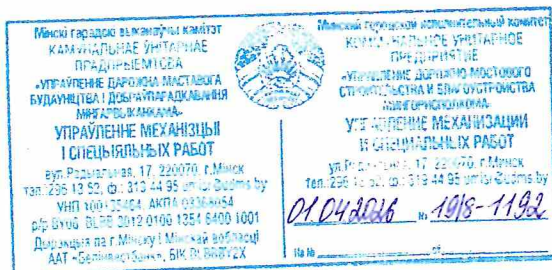 Мінскі гарадскі выканаўчы камітэт
КАМУНАЛЬНАЕ УНІТАРНАЕ
ПРАДПРЫЕМСТВА
«УПРАЎЛЕННЕ ДАРОЖНА-МАСТАВОГА
БУДАЎНІЦТВА І ДОБРАЎПАРАДКАВАННЯ
МІНГАРВЫКАНКАМА»
УПРАЎЛЕННЕ МЕХАНІЗЦЫІ
І СПЕЦЫЯЛЬНЫХ РАБОТ
вул. Радыяльная, 17, 220070, г.Мінск
тэл. 296 13 52, ф.: 319 44 95
УНП
Дырэкцыя па г.Мінску і Мінскай вобласці
ААТ «Белінвестбанк», БІК
Минский городской исполнительный комитет
КОММУНАЛЬНОЕ УНИТАРНОЕ
ПРЕДПРИЯТИЕ
«УПРАВЛЕНИЕ ДОРОЖНО-МОСТОВОГО
СТРОИТЕЛЬСТВА И БЛАГОУСТРОЙСТВА
МИНГОРИСПОЛКОМА»
УПРАВЛЕНИЕ МЕХАНИЗАЦИИ
И СПЕЦИАЛЬНЫХ РАБОТ
ул. 17, 220070, г.Минск
тел.: 319 44 95
01.04.2026 № 19/8-1192
На № от